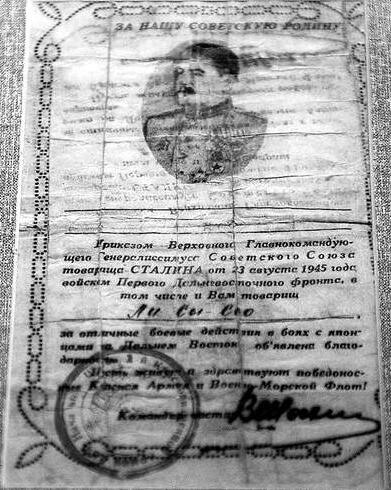 ЗА НАШУ СОВЕТСКУЮ РОДИНУ
Приказом Верховного Главнокомандую-
щего Генералиссимуса Советского Союза
товарища СТАЛИНА от 23 августа 1945 года
войскам Первого Дальневосточного фронта, в
том числе и Вам товарищ
Ли
за отличные боевые действия в боях с япон-
цами на Дальнем Востоке объявлена благо-
дарность.
Пусть живут и здравствуют победонос-
ные Красная Армия и Военно-Морской Флот!
Командир части